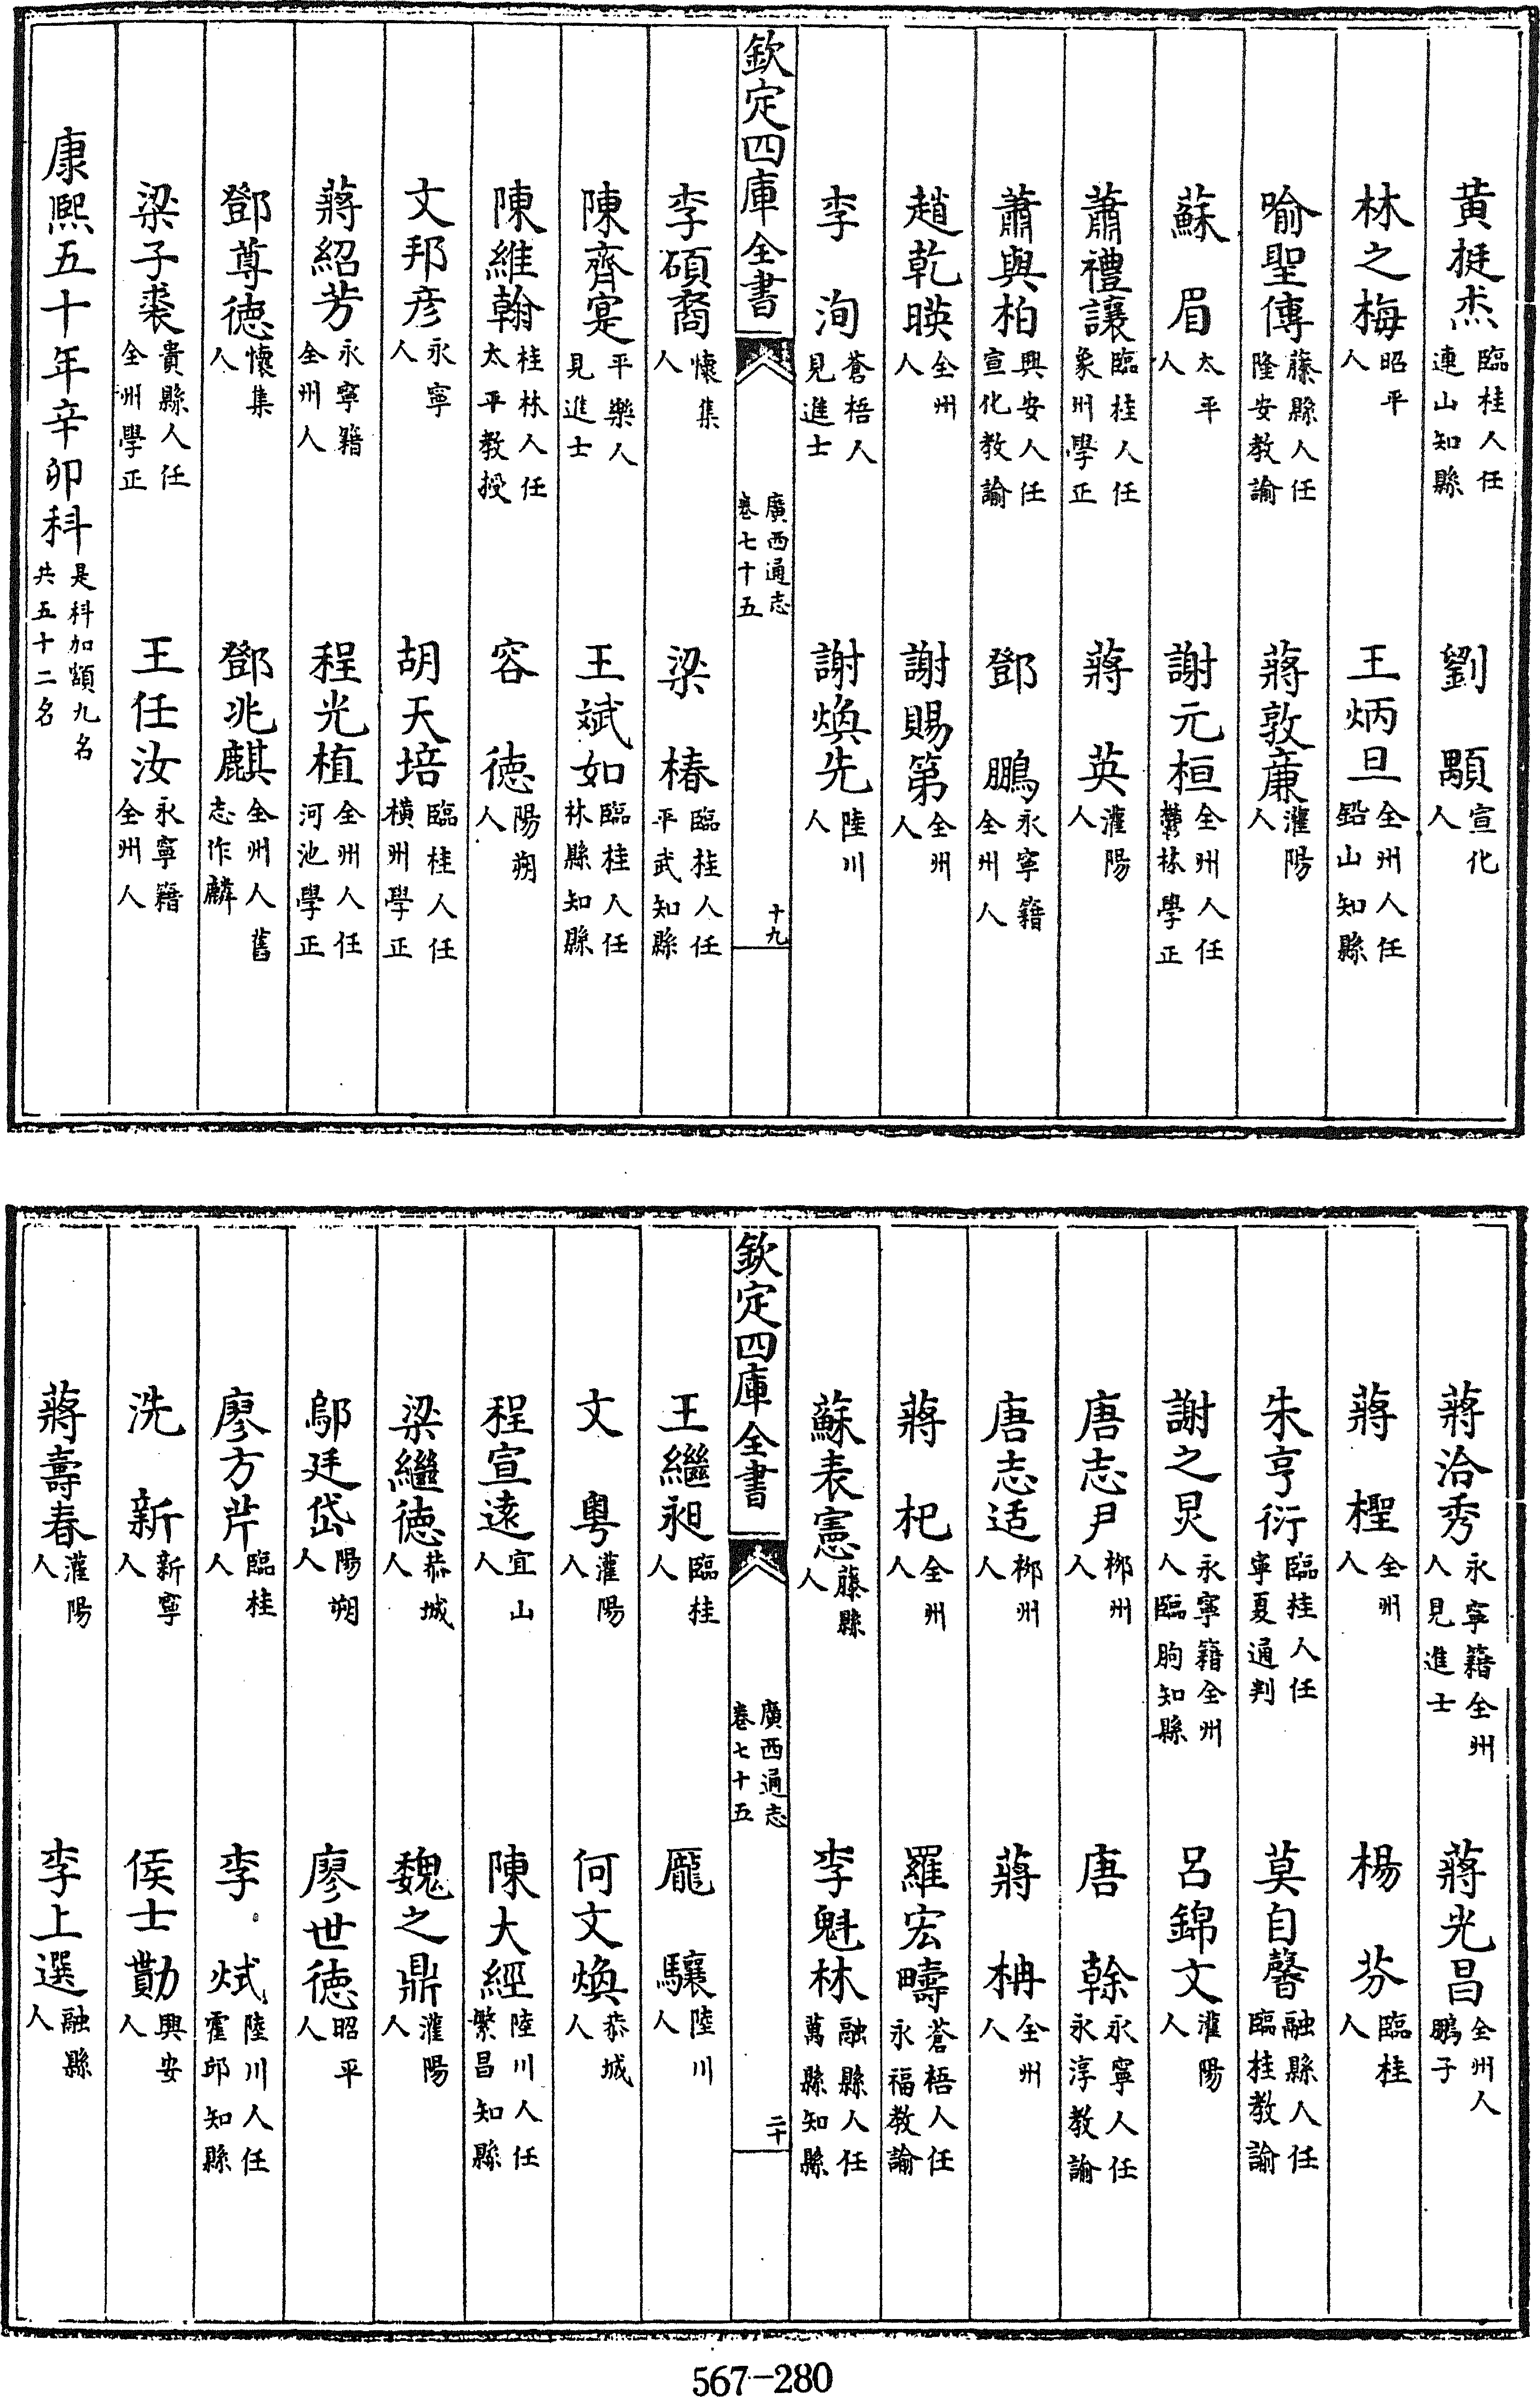 黄挺杰臨桂人任連山知縣 劉顒宣化人
林之梅昭平人 王炳旦全州人任鉛山知縣
喻聖傳藤縣人任隆安教諭 蔣敦㢘灌陽人
蘇眉太平人 謝元桓全州人任鬱林學正
蕭禮讓臨桂人任象州學正 蔣英灌陽人
蕭與柏興安人任宣化教諭 鄧鵬永寧籍全州人
趙乾暎全州人 謝賜第全州人
李洵蒼梧人見進士 謝煥先陸川人
欽定四庫全書 廣西通志卷七十五 十九
李碩裔懷集人 梁椿臨桂人任平武知縣
陳齊寔平樂人見進士 王斌如臨桂人任林縣知縣
陳維翰桂林人任太平教授 容德陽朔人
文邦彦永寧人 胡天培臨桂人任横州學正
蔣紹芳永寧籍全州人 程光植全州人任河池學正
鄧尊德懷集人 鄧兆麒全州人舊志作麟
梁子裘貴縣人任全州學正 王任汝永寧籍全州人
康熙五十年辛卯科是科加額九名共五十二名
蔣洽秀永寧籍全州人見進士 蔣光昌全州人鵬子
蔣檉全州人 楊芬臨桂人
朱亨衍臨桂人任寧夏通判 莫自馨融縣人任臨桂教諭
謝之炅永寧籍全州人臨朐知縣 呂錦文灌陽人
唐志尹栁州人 唐榦永寧人任永淳教諭
唐志适栁州人 蔣柟全州人
蔣杞全州人 羅宏疇蒼梧人任永福教諭
蘇表憲藤縣人 李魁林融縣人任萬縣知縣
欽定四庫全書 廣西通志卷七十五 二十
王繼昶臨桂人 龎驤陸川人
文粤灌陽人 何文煥恭城人
程宣逺宜山人 陳大經陸川人任繁昌知縣
梁繼德恭城人 魏之鼎灌陽人
鄔廷岱陽朔人 廖世德昭平人
廖方芹臨桂人 李烒陸川人任霍邱知縣
洗新新寧人 侯士勷興安人
蔣壽春灌陽人 李上選融縣人
567-280